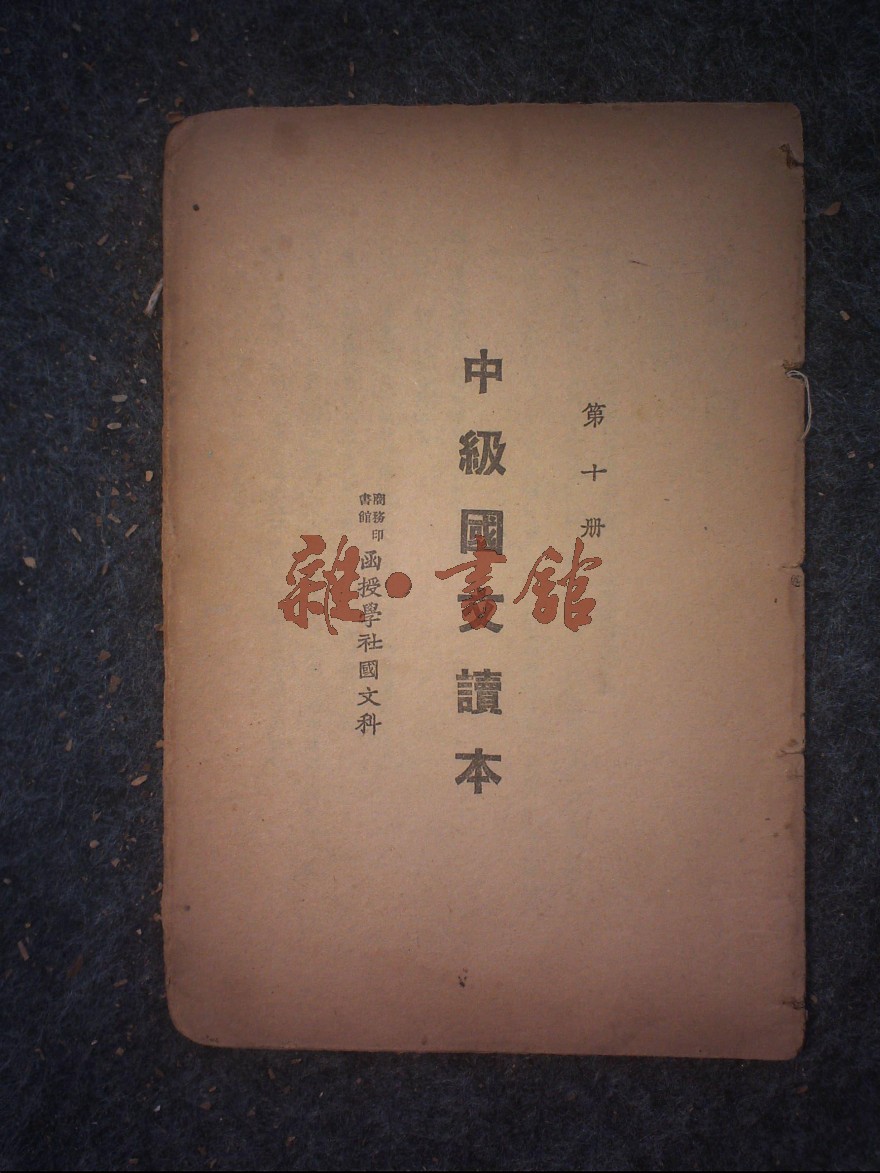 第十册
中級國文讀本
商務印書館函授學社國文科
雜·書館